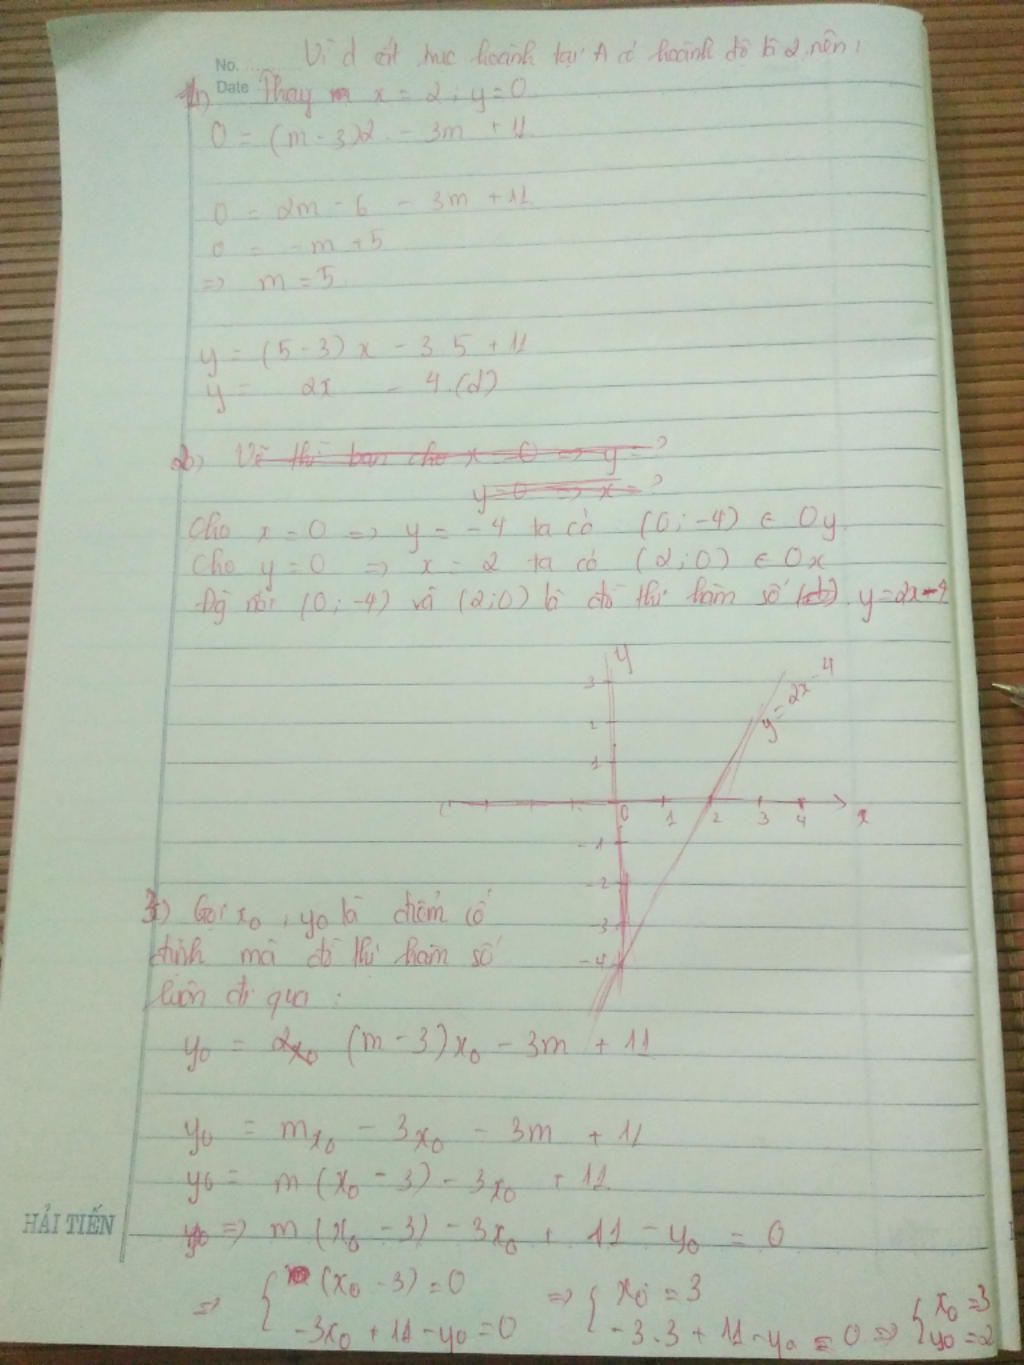 Vì d cắt trục hoành tại A có hoành độ là 2 nên:
No.
Date
1) Thay x = 2; y = 0
0 = (m - 3)2 - 3m + 11
0 = 2m - 6 - 3m + 11
0 = -m + 5
=> m = 5
y = (5 - 3)x - 3.5 + 11
y = 2x - 4 (d)
2) Vẽ thì bạn cho x = 0 => y = ?
y = 0 => x = ?
Cho x = 0 => y = -4 ta có (0; -4) ∈ Oy
Cho y = 0 => x = 2 ta có (2; 0) ∈ Ox
nối (0; -4) và (2; 0) là đồ thị hàm số y = 2x - 4
y
3
2
1
0 1 2 3 4 x
-1
-2
-3
-4
y = 2x - 4
3) Gọi x₀, y₀ là điểm cố
định mà đồ thị hàm số
luôn đi qua:
y₀ = (m - 3)x₀ - 3m + 11
y₀ = mx₀ - 3x₀ - 3m + 11
y₀ = m(x₀ - 3) - 3x₀ + 11
=> m(x₀ - 3) - 3x₀ + 11 - y₀ = 0
HẢI TIẾN
=> { (x₀ - 3) = 0 => { x₀ = 3 { x₀ = 3
-3x₀ + 11 - y₀ = 0 -3.3 + 11 - y₀ = 0 => y₀ = 2